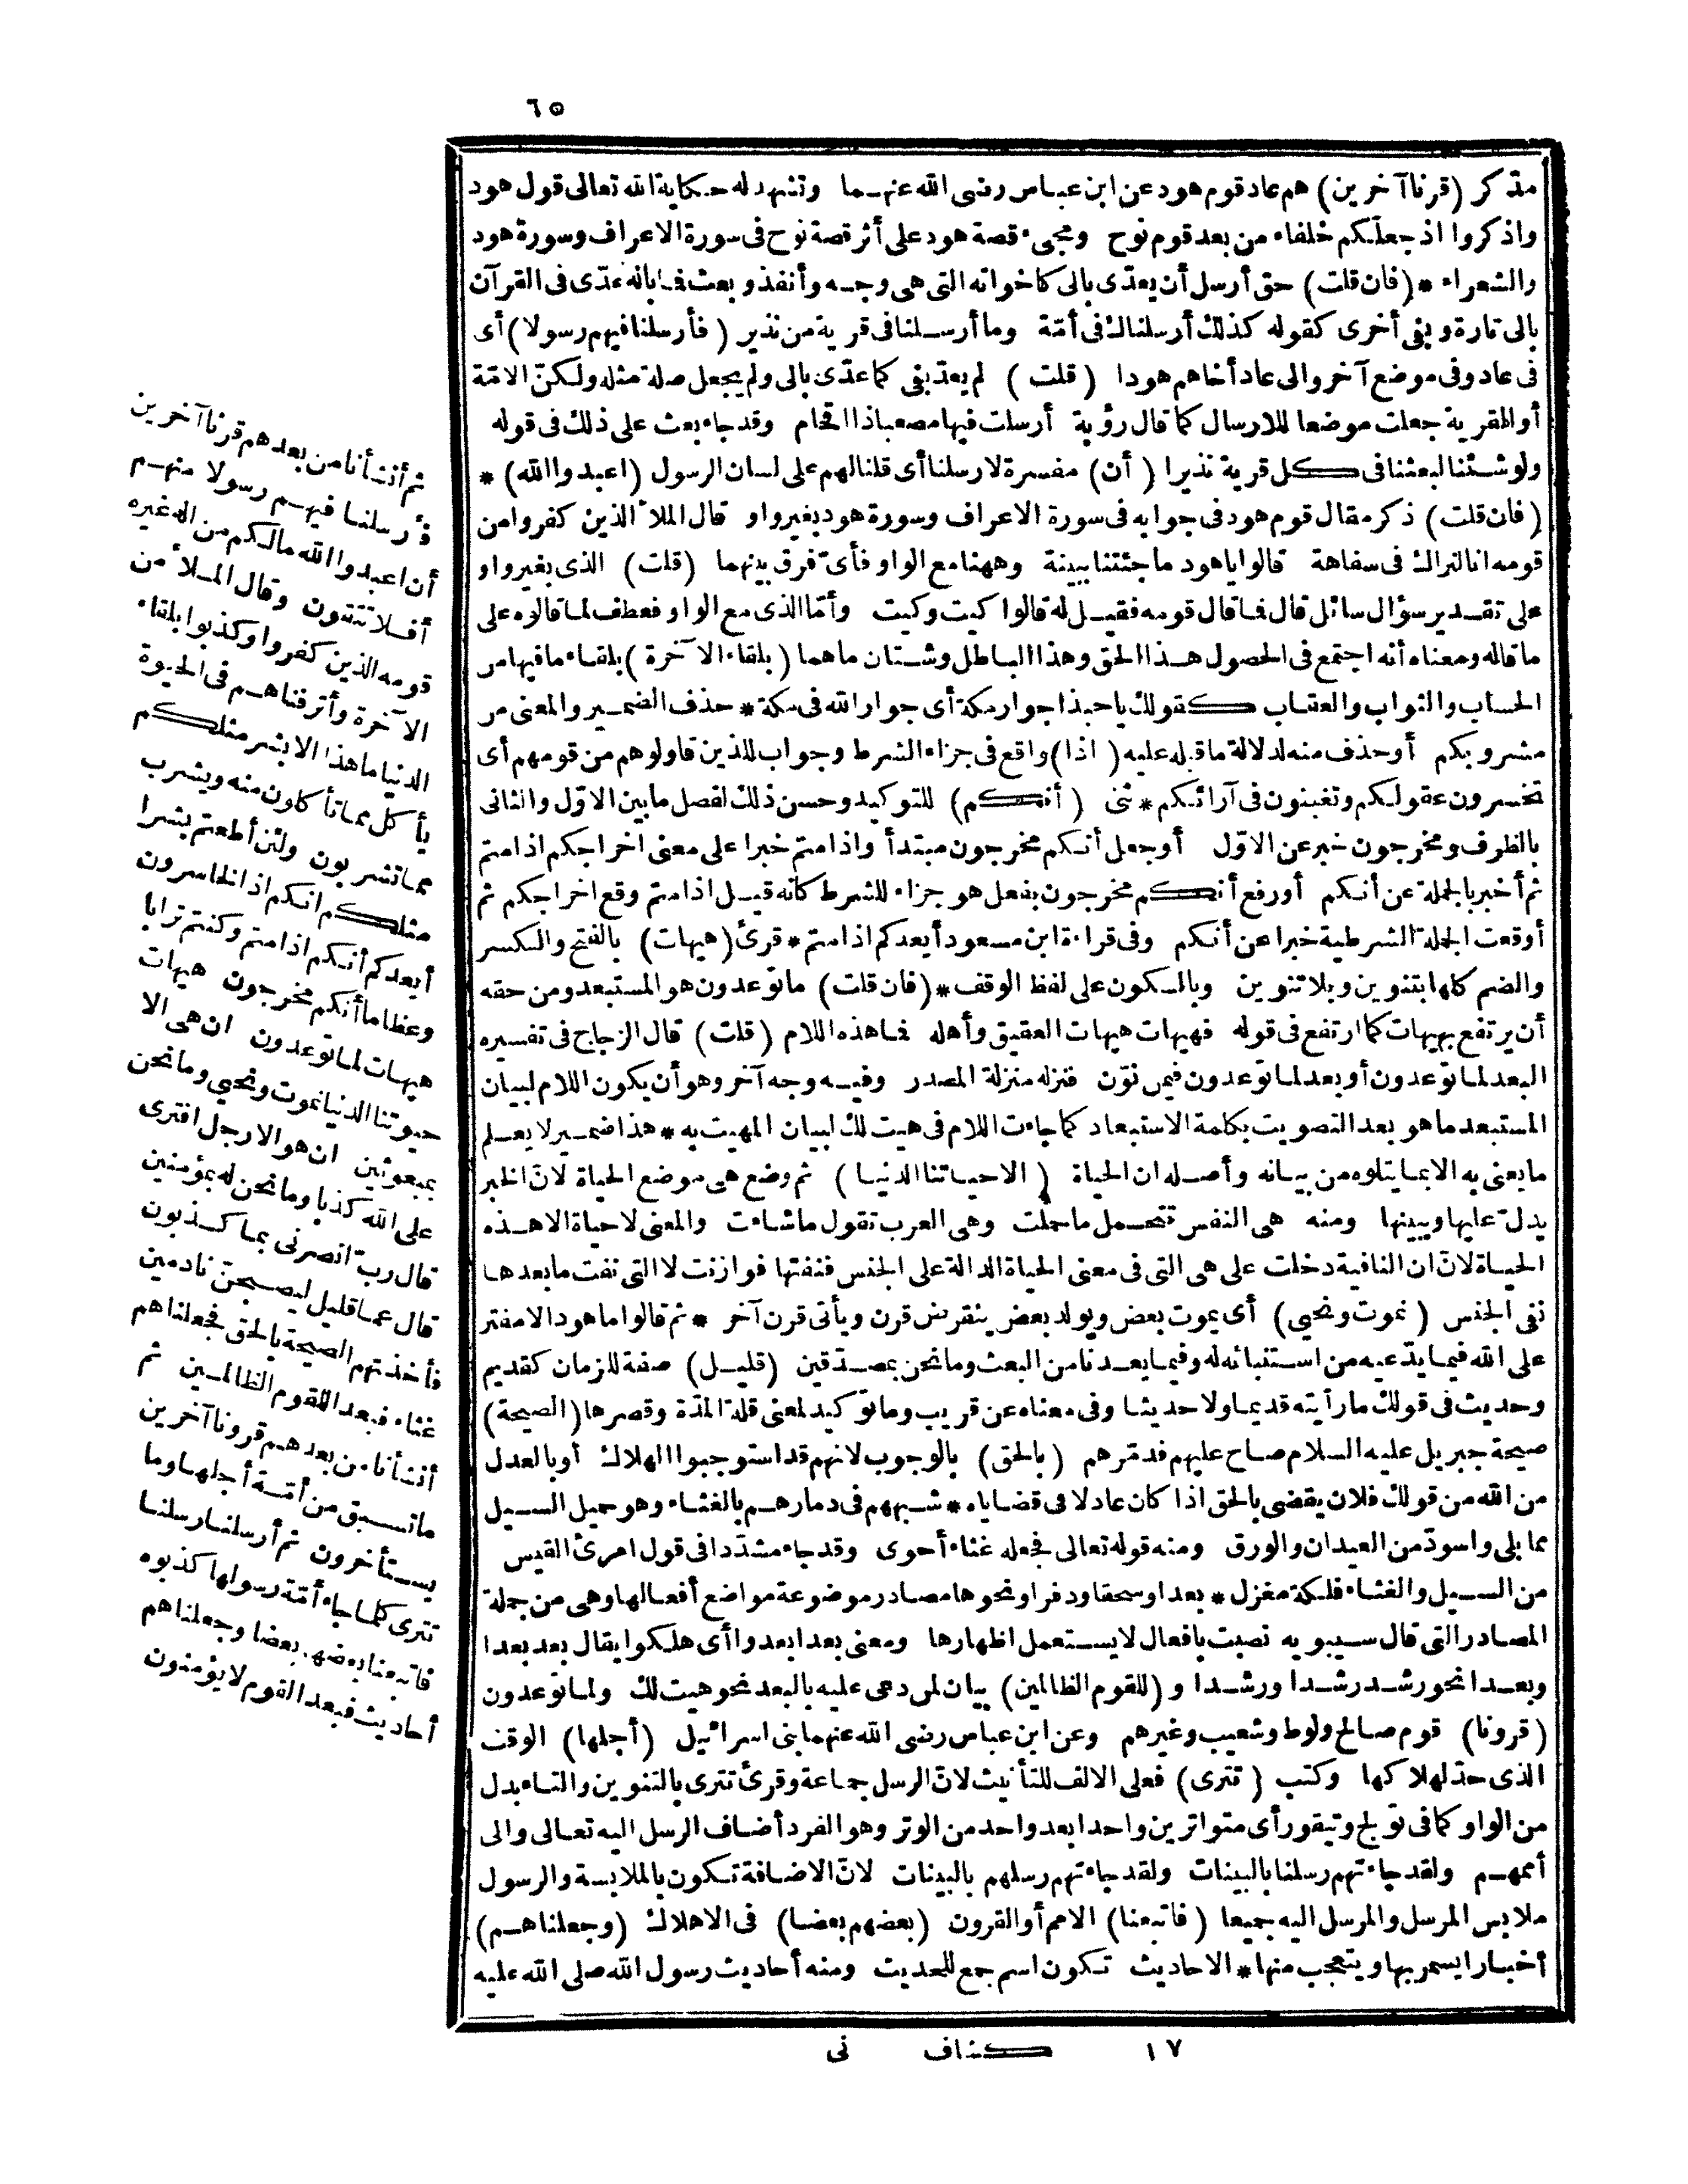 ٦٥
مدّكر (قرنا آخرين) هم عاد قوم هود عن ابن عباس رضى الله عنهما وتشهد له حكاية الله تعالى قول هود
واذكروا اذ جعلكم خلفاء من بعد قوم نوح ومجىء قصة هود على أثر قصة نوح فى سورة الاعراف وسورة هود
والشعراء * (فان قلت) حق أرسل أن يعدّى بالى كاخواته التى هى وجه وأنفذ وبعث فما باله عدّى فى القرآن
بالى تارة وبفى أخرى كقوله كذلك أرسلناك فى أمّة وما أرسلنا فى قرية من نذير (فأرسلنا فيهم رسولا) أى
فى عاد وفى موضع آخر والى عاد أخاهم هودا (قلت) لم يعدّ بفى كما عدّى بالى ولم يجعل صلة مثله ولكنّ الامّة
أو القرية جعلت موضعا للارسال كما قال رؤبة أرسلت فيها مصعبا ذا اقحام وقد جاء بعث على ذلك فى قوله
ولو شئنا لبعثنا فى كل قرية نذيرا (أن) مفسرة لارسلنا أى قلنا لهم على لسان الرسول (اعبدوا الله) *
(فان قلت) ذكر مقال قوم هود فى جوابه فى سورة الاعراف وسورة هود بغير واو قال الملأ الذين كفروا من
قومه انا لنراك فى سفاهة قالوا يا هود ما جئتنا ببينة وههنا مع الواو فأىّ فرق بينهما (قلت) الذى بغير واو
على تقدير سؤال سائل قال فما قال قومه فقيل له قالوا كيت وكيت وأمّا الذى مع الواو فعطف لما قالوه على
ما قاله ومعناه أنه اجتمع فى الحصول هذا الحق وهذا الباطل وشتان ما هما (بلقاء الآخرة) بلقاء ما فيها من
الحساب والثواب والعقاب كقولك يا حبذا جوار مكة أى جوار الله فى مكة * حذف الضمير والمعنى من
مشروبكم أو حذف منه لدلالة ما قبله عليه (اذا) واقع فى جزاء الشرط وجواب للذين قاولوهم من قومهم أى
تخسرون عقولكم وتغبنون فى آرائكم * ثنى (أنكم) للتوكيد وحسن ذلك لفصل ما بين الاوّل والثانى
بالظرف ومخرجون خبر عن الاوّل أو جعل أنكم مخرجون مبتدأ واذا متم خبرا على معنى اخراجكم اذا متم
ثم أخبر بالجملة عن أنكم أو رفع أنكم مخرجون بفعل هو جزاء للشرط كأنه قيل اذا متم وقع اخراجكم ثم
أوقعت الجملة الشرطية خبرا عن أنكم وفى قراءة ابن مسعود أيعدكم اذا متم * قرئ (هيهات) بالفتح والكسر
والضم كلها بتنوين وبلا تنوين وبالسكون على لفظ الوقف * (فان قلت) ما توعدون هو المستبعد ومن حقه
أن يرتفع بهيهات كما ارتفع فى قوله فهيهات هيهات العقيق وأهله فما هذه اللام (قلت) قال الزجاج فى تفسيره
البعد لما توعدون أو بعد لما توعدون فيمن نوّن فنزله منزلة المصدر وفيه وجه آخر وهو أن يكون اللام لبيان
المستبعد ما هو بعد التصويت بكلمة الاستبعاد كما جاءت اللام فى هيت لك لبيان المهيت به * هذا ضمير لا يعلم
ما يعنى به الا بما يتلوه من بيانه وأصله ان الحياة (الا حياتنا الدنيا) ثم وضع هى موضع الحياة لانّ الخبر
يدلّ عليها ويبينها ومنه هى النفس تتحمل ما حملت وهى العرب تقول ما شاءت والمعنى لا حياة الا هذه
الحياة لانّ ان النافية دخلت على هى التى فى معنى الحياة الدالة على الجنس فنفتها فوازنت لا التى نفت ما بعدها
نفى الجنس (نموت ونحيى) أى يموت بعض ويولد بعض ينقرض قرن ويأتى قرن آخر * ثم قالوا ما هود الا مفتر
على الله فيما يدّعيه من استنبائه له وفيما يعدنا من البعث وما نحن بمصدّقين (قليل) صفة للزمان كقديم
وحديث فى قولك ما رأيته قديما ولا حديثا وفى معناه عن قريب وما توكيد لمعنى قلة المدّة وقصرها (الصيحة)
صيحة جبريل عليه السلام صاح عليهم فدمّرهم (بالحق) بالوجوب لانهم قد استوجبوا الهلاك أو بالعدل
من الله من قولك فلان يقضى بالحق اذا كان عادلا فى قضاياه * شبههم فى دمارهم بالغثاء وهو حميل السيل
مما بلى واسودّ من العيدان والورق ومنه قوله تعالى فجعله غثاء أحوى وقد جاء مشدّدا فى قول امرئ القيس
من السيل والغثاء فلكة مغزل * بعدا وسحقا ودفرا ونحوها مصادر موضوعة مواضع أفعالها وهى من جملة
المصادر التى قال سيبويه نصبت بافعال لا يستعمل اظهارها ومعنى بعدا بعدوا أى هلكوا يقال بعد بعدا
وبعدا نحو رشد رشدا ورشدا و (للقوم الظالمين) بيان لمن دعى عليه بالبعد نحو هيت لك ولما توعدون
(قرونا) قوم صالح ولوط وشعيب وغيرهم وعن ابن عباس رضى الله عنهما بنى اسرائيل (أجلها) الوقت
الذى حدّ لهلاكها وكتب (تترى) فعلى الالف للتأنيث لانّ الرسل جماعة وقرئ تترى بالتنوين والتاء بدل
من الواو كما فى تولج وتيقور أى متواترين واحدا بعد واحد من الوتر وهو الفرد أضاف الرسل اليه تعالى والى
أممهم ولقد جاءتهم رسلنا بالبينات ولقد جاءتهم رسلهم بالبينات لانّ الاضافة تكون بالملابسة والرسول
ملابس المرسل والمرسل اليه جميعا (فاتبعنا) الامم أو القرون (بعضهم بعضا) فى الاهلاك (وجعلناهم)
أخبارا يسمر بها ويتعجب منها * الاحاديث تكون اسم جمع للحديث ومنه أحاديث رسول الله صلى الله عليه
ثم أنشأنا من بعدهم قرنا آخرين
فأرسلنا فيهم رسولا منهم
أن اعبدوا الله ما لكم من اله غيره
أفلا تتقون وقال الملأ من
قومه الذين كفروا وكذبوا بلقاء
الآخرة وأترفناهم فى الحيوة
الدنيا ما هذا الا بشر مثلكم
يأكل مما تأكلون منه ويشرب
مما تشربون ولئن أطعتم بشرا
مثلكم انكم اذا لخاسرون
أيعدكم أنكم اذا متم وكنتم ترابا
وعظاما أنكم مخرجون هيهات
هيهات لما توعدون ان هى الا
حيوتنا الدنيا نموت ونحيى وما نحن
بمبعوثين ان هو الا رجل افترى
على الله كذبا وما نحن له بمؤمنين
قال رب انصرنى بما كذبون
قال عما قليل ليصبحنّ نادمين
فأخذتهم الصيحة بالحق فجعلناهم
غثاء فبعدا للقوم الظالمين ثم
أنشأنا من بعدهم قرونا آخرين
ما تسبق من أمّة أجلها وما
يستأخرون ثم أرسلنا رسلنا
تترى كلما جاء أمّة رسولها كذبوه
فاتبعنا بعضهم بعضا وجعلناهم
أحاديث فبعدا لقوم لا يؤمنون
١٧ كشاف نى